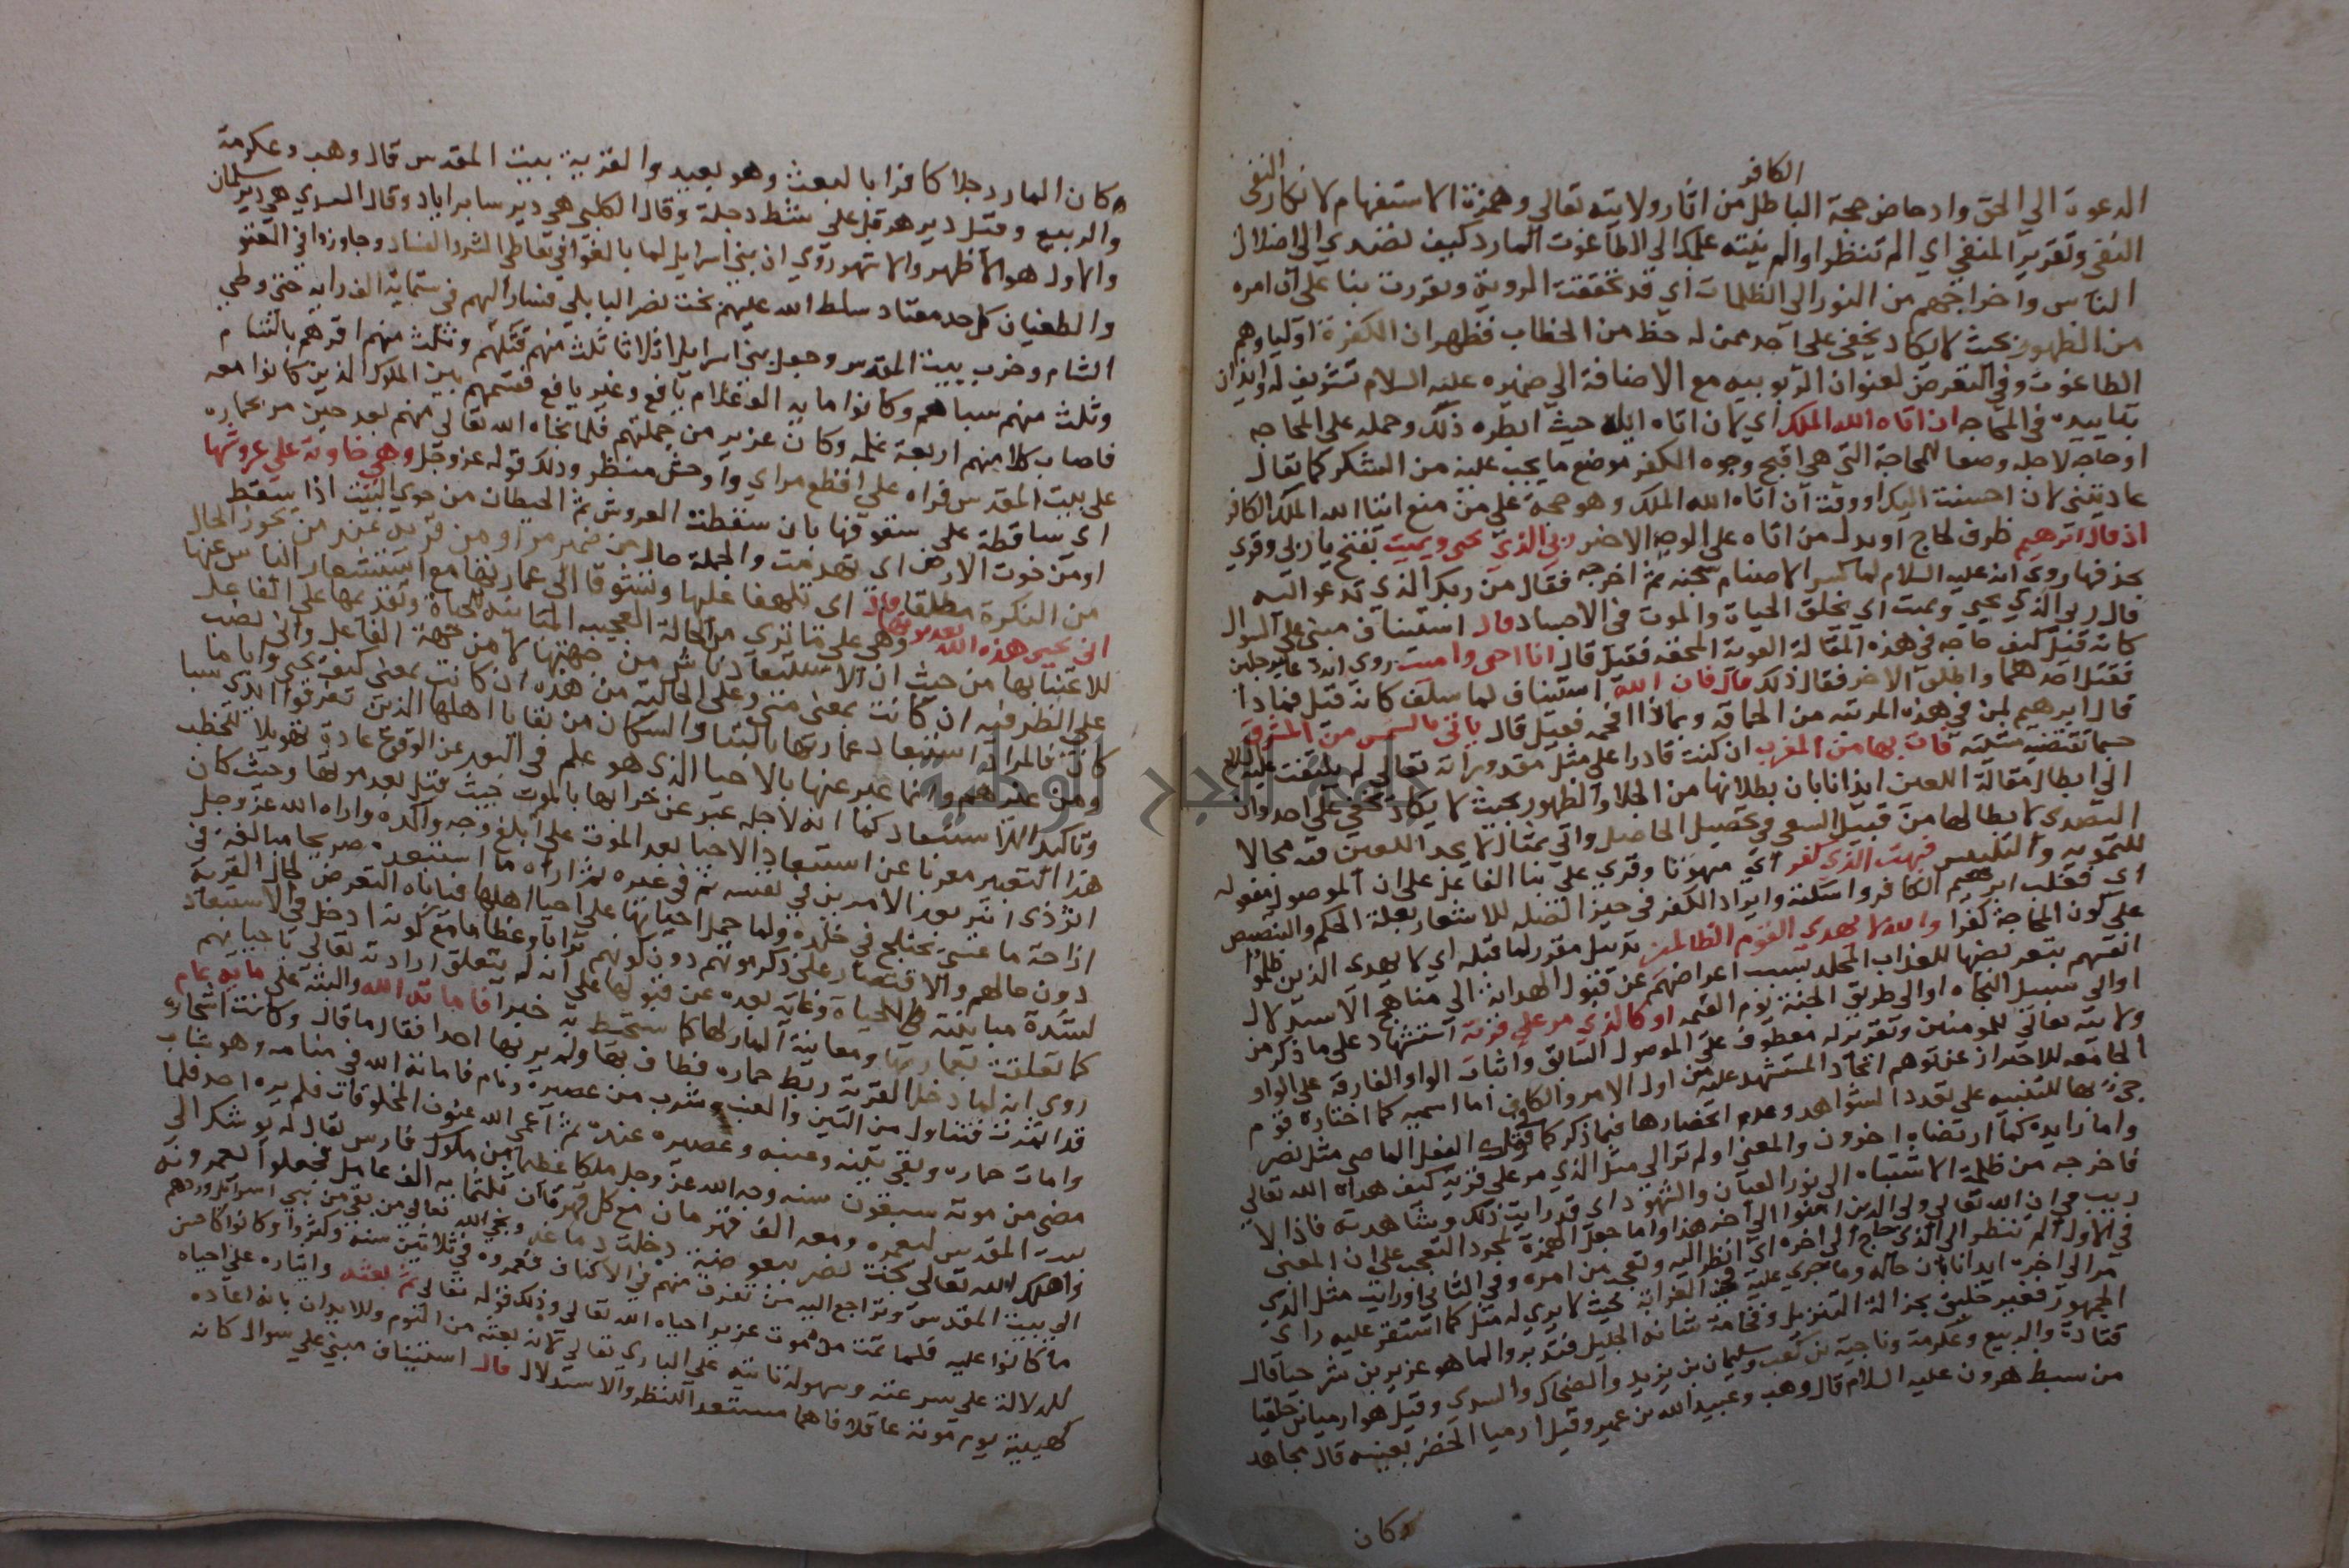 الكافر
الدعوة الي الحق وادحاض حجة الباطل من اثار ولايته تعالي وهمزة الاستفهام لانكار النفي
النفي وتقرير المنفي اي الم تنظر او الم ينته علمك الي الطاغوت المارد كيف تصدي الي اضلال
الناس واخراجهم من النور الي الظلمات اي قد تحققت الروية وتقررت بنا علي ان امره
من الظهور بحيث لا يكاد يخفي علي احد ممن له حظ من الخطاب فظهر ان الكفرة اولياوهم
الطاغوت وفي التعرض لعنوان الربوبيه مع الاضافة الي ضميره عليه السلام تشريف له وايذان
بتاييده في المحاجه ان اتاه الله الملك اي لان اتاه اياه حيث ابطره ذلك وحمله علي المحاجه
او حاجه لاجله وضعا للمحاجة التي هي اقبح وجوه الكفر موضع ما يجب عليه من الشكر كما يقال
عاديتني لان احسنت اليك او وقت ان اتاه الله الملك وهو حجة علي من منع ايتا الله الملك الكافر
اذ قال ابرهيم ظرف لحاج او بدل من اتاه علي الوجه الاخير ربي الذي يحيي ويميت بفتح يا ربي وقري
بحذفها روي انه عليه السلام لما كسر الاصنام سجنه ثم اخرجه فقال من ربك الذي تدعو اليه
قال ربي الذي يحيي ويميت اي يخلق الحياة والموت في الاجساد قال استيناف مبني علي السوال
كانه قيل كيف حاجه في هذه المقالة القوية الحقه فقيل قال انا احي واميت روي انه دعا برجلين
فقتل احدهما واطلق الاخر فقال ذلك قال فان الله استيناف لما سلف كانه قيل فماذا
قال ابرهيم لمن في هذه المرتبه من الحماقه وبماذا افحمه فقيل قال ياتي بالشمس من المشرق
حسبما تقتضيه مشيته فات بها من المغرب ان كنت قادرا علي مثل مقدوراته تعالي لم يلتفت عليه السلام
الي ابطال مقالة اللعين ايذانا بان بطلانها من الجلا والظهور بحيث لا يكاد يخفي علي احد وان
التصدي لابطالها من قبيل السعي في تحصيل الحاصل واتي بمثال لا يجد اللعين فيه مجالا
للتمويه والتلبيس فبهت الذي كفر اي مبهوتا وقري علي بنا الفاعل علي ان الموصول مفعوله
اي فغلب ابرهيم الكافر واسكته وايراد الكفر في حيز الصله للاشعار بعلة الحكم والتنصيص
علي كون المحاجة كفرا والله لا يهدي القوم الظالمين تذييل مقرر لما قبله اي لا يهدي الذين ظلموا
انفسهم بتعريضها للعذاب المخلد بسبب اعراضهم عن قبول الهداية الي مناهج الاستدلال
او الي سبيل النجاه او الي طريق الجنة يوم القيمه او كالذي مر علي قرية استشهاد علي ما ذكر من
ولايته تعالي للمومنين وتقرير له معطوف علي الموصول السابق وايثار الواو الفارقة علي الواو
الجامعه للاحتراز عن توهم اتحاد المستشهد عليه من اول الامر والكاف اما اسميه كما اختاره قوم
جي بها للتنبيه علي تعدد الشواهد وعدم انحصارها فيما ذكر كما في قولك الفعل الماضي مثل نصر
واما زايدة كما ارتضاه اخرون والمعني اولم تر الي مثل الذي مر علي قرية كيف هداه الله تعالي
فاخرجه من ظلمة الاشتباه الي نور العيان والشهود اي قد رايت ذلك وشاهدته فاذا لا
ريب في ان الله تعالي ولي الذين امنوا الي اخره هذا واما جعل الهمزة لمجرد التعجب علي ان المعني
في الاول الم تنظر الي الذي حاج الي اخره اي انظر اليه وتعجب من امره وفي الثاني او رايت مثل الذي
مر الي اخره ايذانا بان حاله وما جري عليه في الغرابة بحيث لا يري له مثل كما استقر عليه راي
الجمهور فغير خليق بجزالة التنزيل وفخامة شانه الجليل فتدبر والمار هو عزير بن شرحيا قاله
قتادة والربيع وعكرمة وناجية بن كعب وسليمان بن يزيد والضحاك والسدي وقيل هو ارميا بن حلقيا
من سبط هرون عليه السلام قال وهب وعبيد الله بن عمير وقيل ارميا الخضر بعينه قال مجاهد
وكان
وكان المار رجلا كافرا بالبعث وهو بعيد والقرية بيت المقدس قال وهب وعكرمة
والربيع وقيل دير هرقل علي شط دجلة وقال الكلبي هي دير سابراباد وقال السدي هي دير سلمان
والاول هو الاظهر والاشهر روي ان بني اسرايل لما بالغوا في تعاطي الشر والفساد وجاوزوا في العتو
والطغيان كل حد معتاد سلط الله عليهم بخت نصر البابلي فسار اليهم في ستماية الف راية حتي وطي
الشام وخرب بيت المقدس وجعل بني اسرايل اثلاثا ثلث منهم قتلهم وثلث منهم اقرهم بالشام
وثلث منهم سباهم وكانوا ماية الف غلام يافع وغير يافع فقسمهم بين الملوك الذين كانوا معه
فاصاب كلا منهم اربعة غلمه وكان عزير من جملتهم فلما نجاه الله تعالي منهم بعد حين مر بحماره
علي بيت المقدس فراه علي افظع مراي واوحش منظر وذلك قوله عز وجل وهي خاوية علي عروشها
اي ساقطة علي سقوفها بان سقطت العروش ثم الحيطان من خوي البيت اذا سقط
او من خوت الارض اي تهدمت والجملة حال من ضمير مر او من قرية عند من يجوز الحال
من النكرة مطلقا قال اي تلهفا عليها وتشوقا الي عمارتها مع استشعار الياس عنها
اني يحيي هذه الله بعد موتها وهي علي ما تري من الحالة العجيبه المباينه للحياة وتقديمها علي الفاعل
للاعتنا بها من حيث ان الاستبعاد ناش من جهتها لا من جهة الفاعل واني نصب
علي الظرفيه ان كانت بمعني متي وعلي الحالية من هذه ان كانت بمعني كيف يحيي وايا ما
كان فالمراد استبعاد عمارتها بالبنا والسكان من بقايا اهلها الذين تفرقوا ايدي سبا
ومن غيرهم وانما عبر عنها بالاحيا الذي هو علم في البعد عن الوقوع عادة تهويلا للخطب
وتاكيدا للاستبعاد كما انه لاجله عبر عن خرابها بالموت حيث قيل بعد موتها وحيث كان
هذا التعبير معربا عن استبعاد الاحيا بعد الموت علي ابلغ وجه واكده واراه الله عز وجل
اثر ذي اثير بعد الامرين في نفسه ثم في غيره ثم اراه ما استبعده صريحا مبالغة في
ازاحة ما عسي يختلج في خلده ولما حمل احياتها علي احيا اهلها فياباه التعرض لحال القرية
دون حالهم والاقتصار علي ذكر موتهم دون كونهم ترابا وعظاما مع كونه ادخل في الاستبعاد
لشدة مباينته للحياة وغاية بعده عن قبولها علي انه لم يتعلق ارادته تعالي باحيايهم
كما تعلقت بعمارتها ومعاينة المار لها كما ستحيط به خبرا فاماته الله والبثه علي ماية عام
روي انه لما دخل القرية ربط حماره فطاف بها ولم ير بها احدا فقال ما قال وكانت اشجارها
قد اثمرت فتناول من التين والعنب وشرب من عصيره ونام فاماته الله في منامه وهو شاب
وامات حماره وبقي تينه وعنبه وعصيره عنده ثم اعمي الله عيون المخلوقات فلم يره احد فلما
مضي من موته سبعون سنه وجه الله عز وجل ملكا عظيما من ملوك فارس يقال له يوشك الي
بيت المقدس ليعمره ومعه الف قهرمان مع كل قهرمان ثلثماية الف عامل فجعلوا يعمرونه
واهلك الله تعالي بخت نصر ببعوضة دخلت دماغه ونجي الله تعالي من بقي من بني اسرايل وردهم
الي بيت المقدس وتراجع اليه من تفرق منهم في الاكناف فعمروه في ثلاثين سنه وكثروا وكانوا كاحسن
ما كانوا عليه فلما تمت من موت عزير احياه الله تعالي وذلك قوله تعالي ثم بعثه وايثاره علي احياه
للدلالة علي سرعته وسهولة تاتيه علي الباري تعالي كانه بعثه من النوم وللايذان بانه اعاده
كهييته يوم موته عاقلا فاهما مستعدا للنظر والاستدلال قال استيناف مبني علي سوال كانه